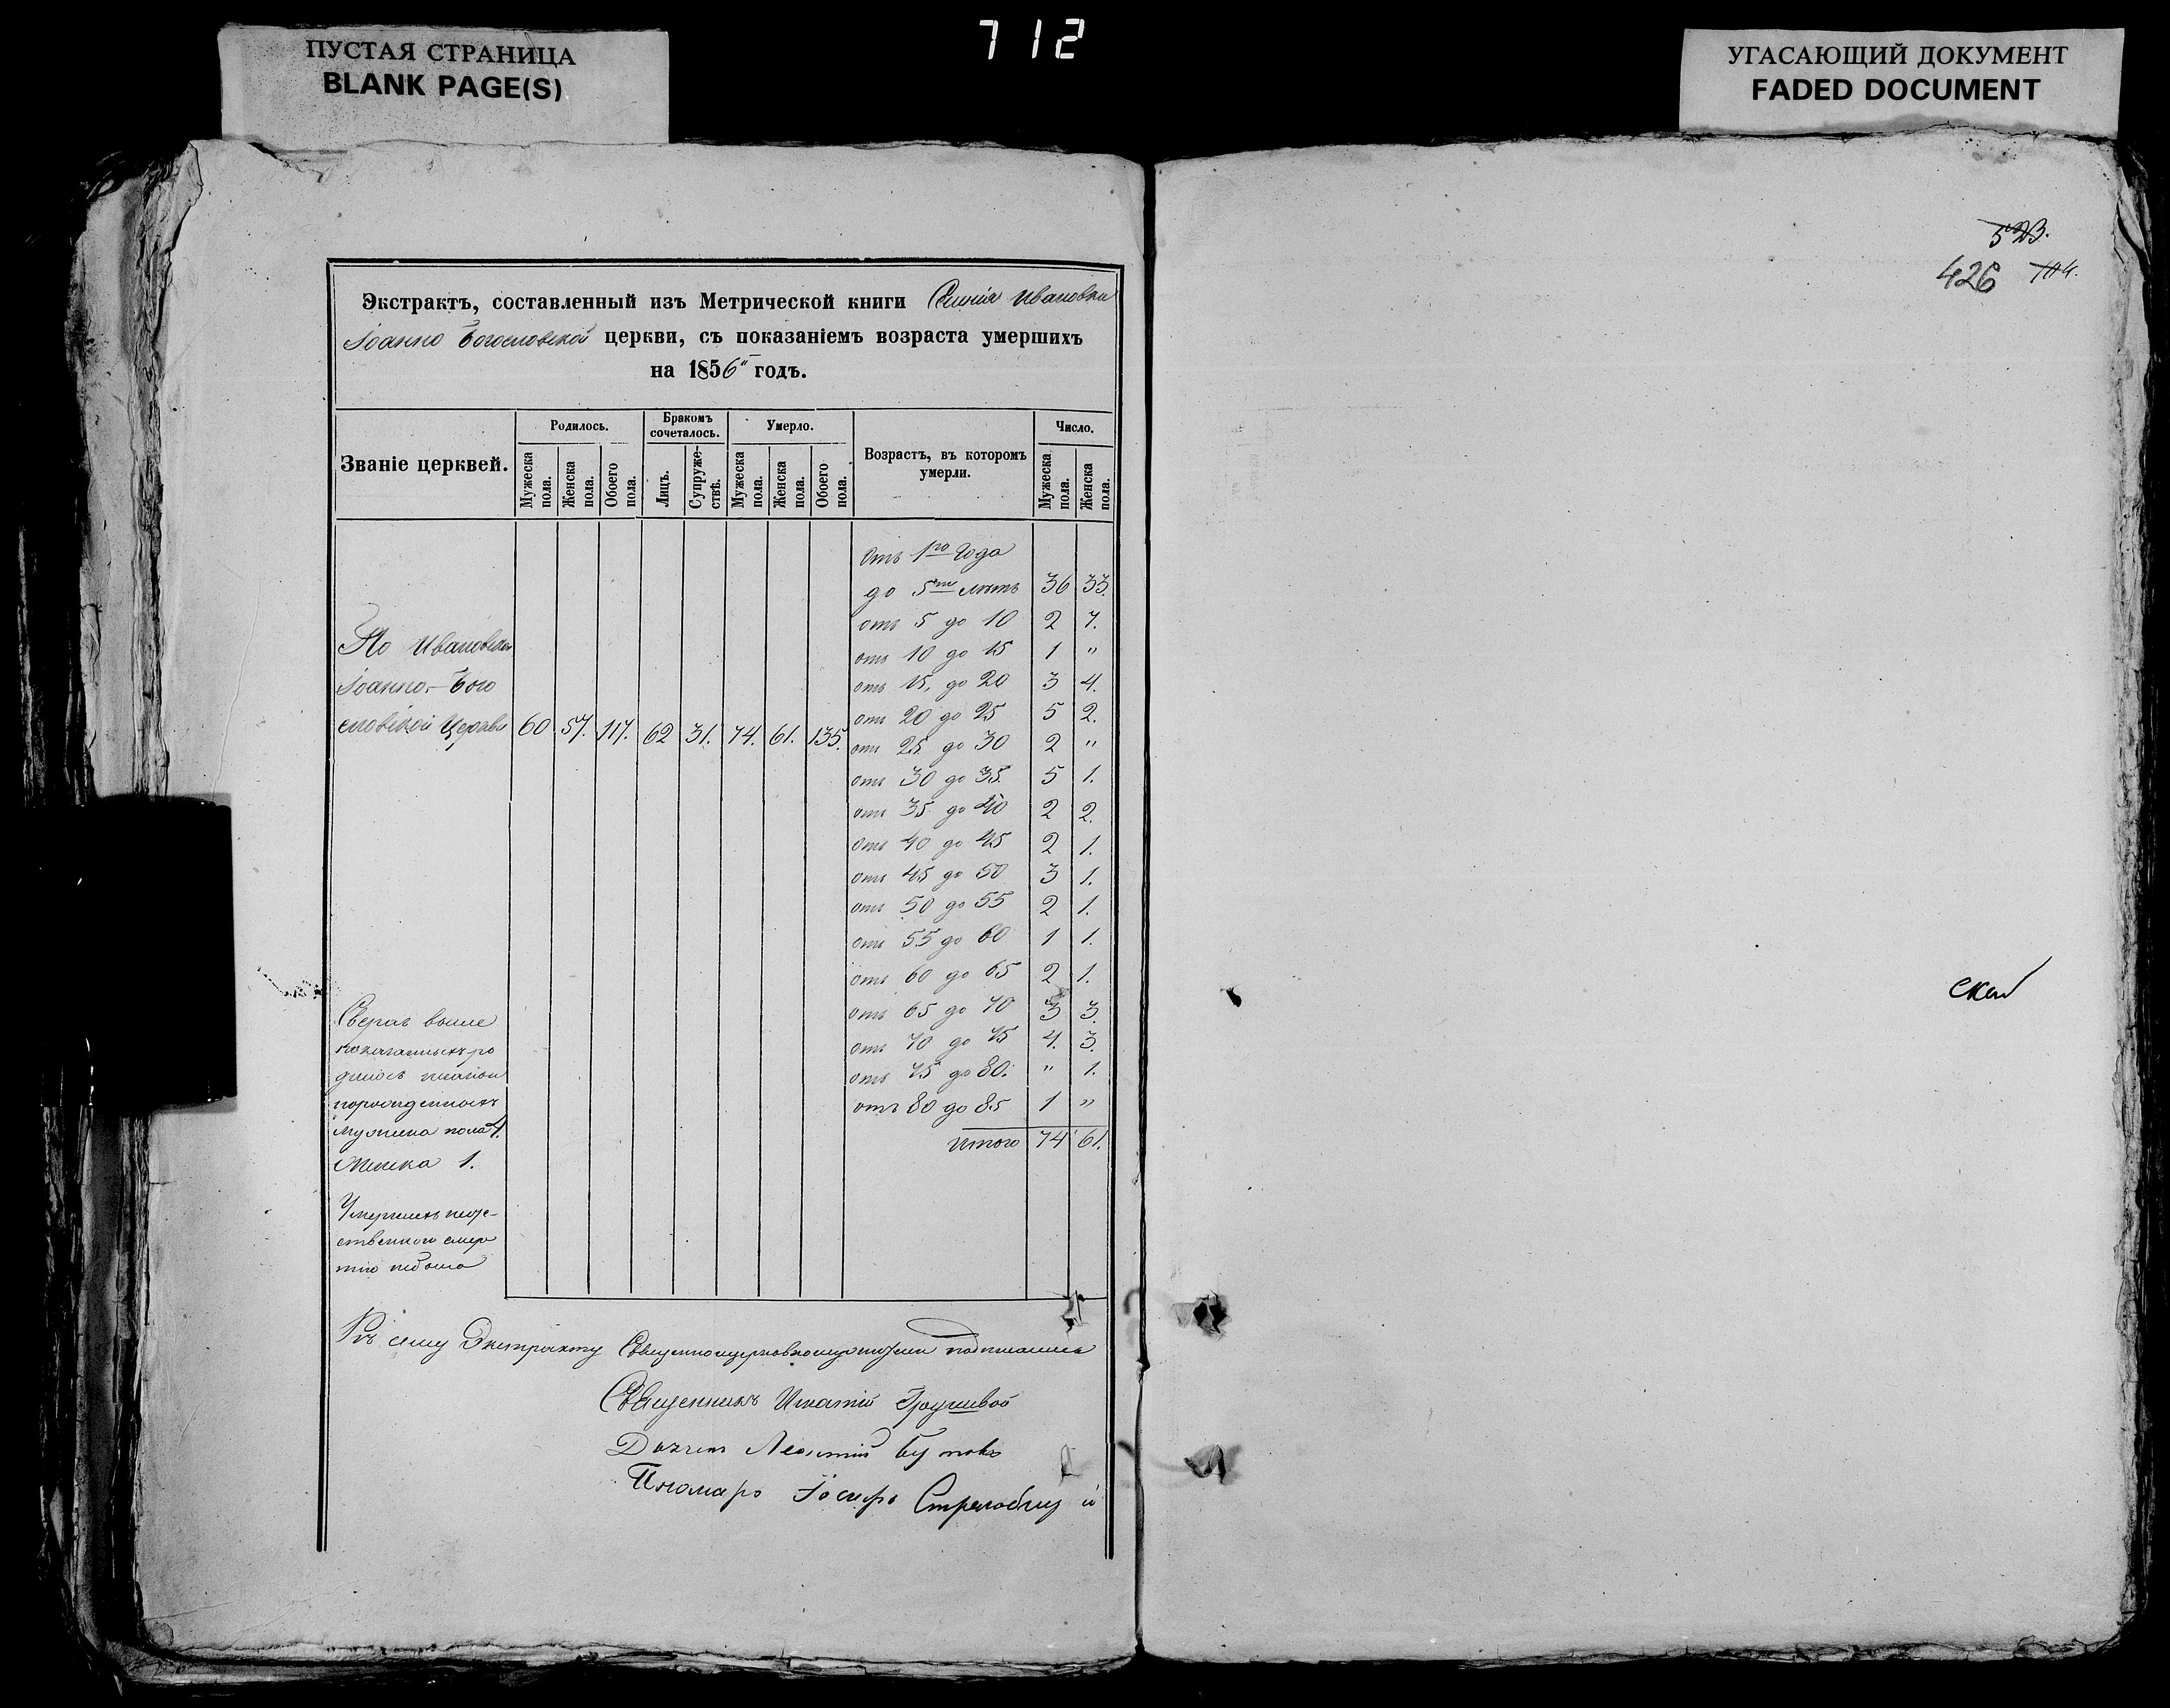 712
ПУСТАЯ СТРАНИЦА
BLANK PAGE(S)
УГАСАЮЩИЙ ДОКУМЕНТ
FADED DOCUMENT
Экстрактъ, составленный изъ Метрической книги Ивановки
Іоанно Богословской церкви, съ показаніемъ возраста умершихъ
на 1856 годъ.
Званіе церквей.
Родилось.
Бракомъ сочеталось.
Умерло.
Возрастъ, въ которомъ умерли.
Число.
Мужеска пола. Женска пола. Обоего пола. Лицъ. Супружествъ. Мужеска пола. Женска пола. Обоего пола. Мужеска пола. Женска пола.
Отъ 1го Года
до 5ти лѣтъ 36 33.
отъ 5 до 10 2 7.
отъ 10 до 15 1 "
отъ 15, до 20 3 4.
отъ 20 до 25 5 2.
отъ 25 до 30 2 "
отъ 30 до 35 5 1.
отъ 35 до 40 2 2.
отъ 40 до 45 2 1.
отъ 45 до 50 3 1.
отъ 50 до 55 2 1.
отъ 55 до 60 1 1.
отъ 60 до 65 2 1.
отъ 65 до 70 3 3.
отъ 70 до 75 4. 3.
отъ 75 до 80. " 1.
отъ 80 до 85 1 "
Итого 74 61.
По Ивановской
Іоанно-Бого
словской Церкви 60 57. 117. 62 31. 74. 61. 135.
Сверхъ выше
показанныхъ ро
дилось незакон
норожденныхъ
мужеска пола 4.
Женска 1.
Умершихъ неесте-
ственною смер
тію небыло
Къ сему Экстракту Священноцерковнослужители подписались
Священникъ Игнатій Грушевой
Дьячекъ Леонтій
Пономарь Іосифъ
523.
426 704.